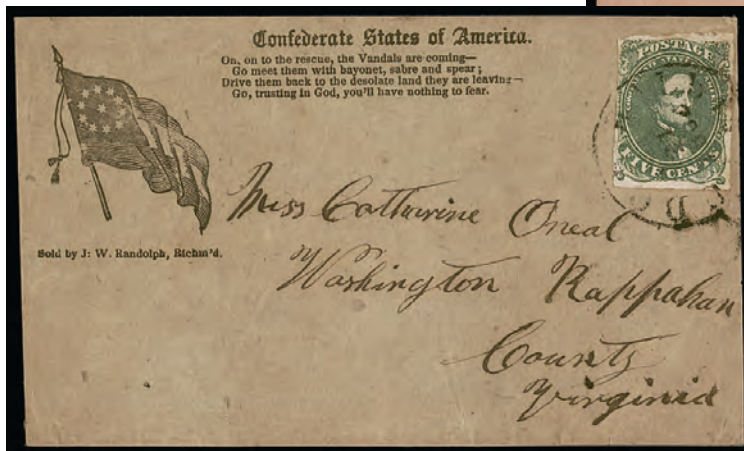 Confederate States of America.
On, on to the rescue, the Vandals are coming—
Go meet them with bayonet, sabre and spear;
Drive them back to the desolate land they are leaving—
Go, trusting in God, you'll have nothing to fear.
POSTAGE
FIVE CENTS
Sold by J: W. Randolph, Richm'd.
Miss Catharine Oneal
Washington Rappahan
County
Virginia